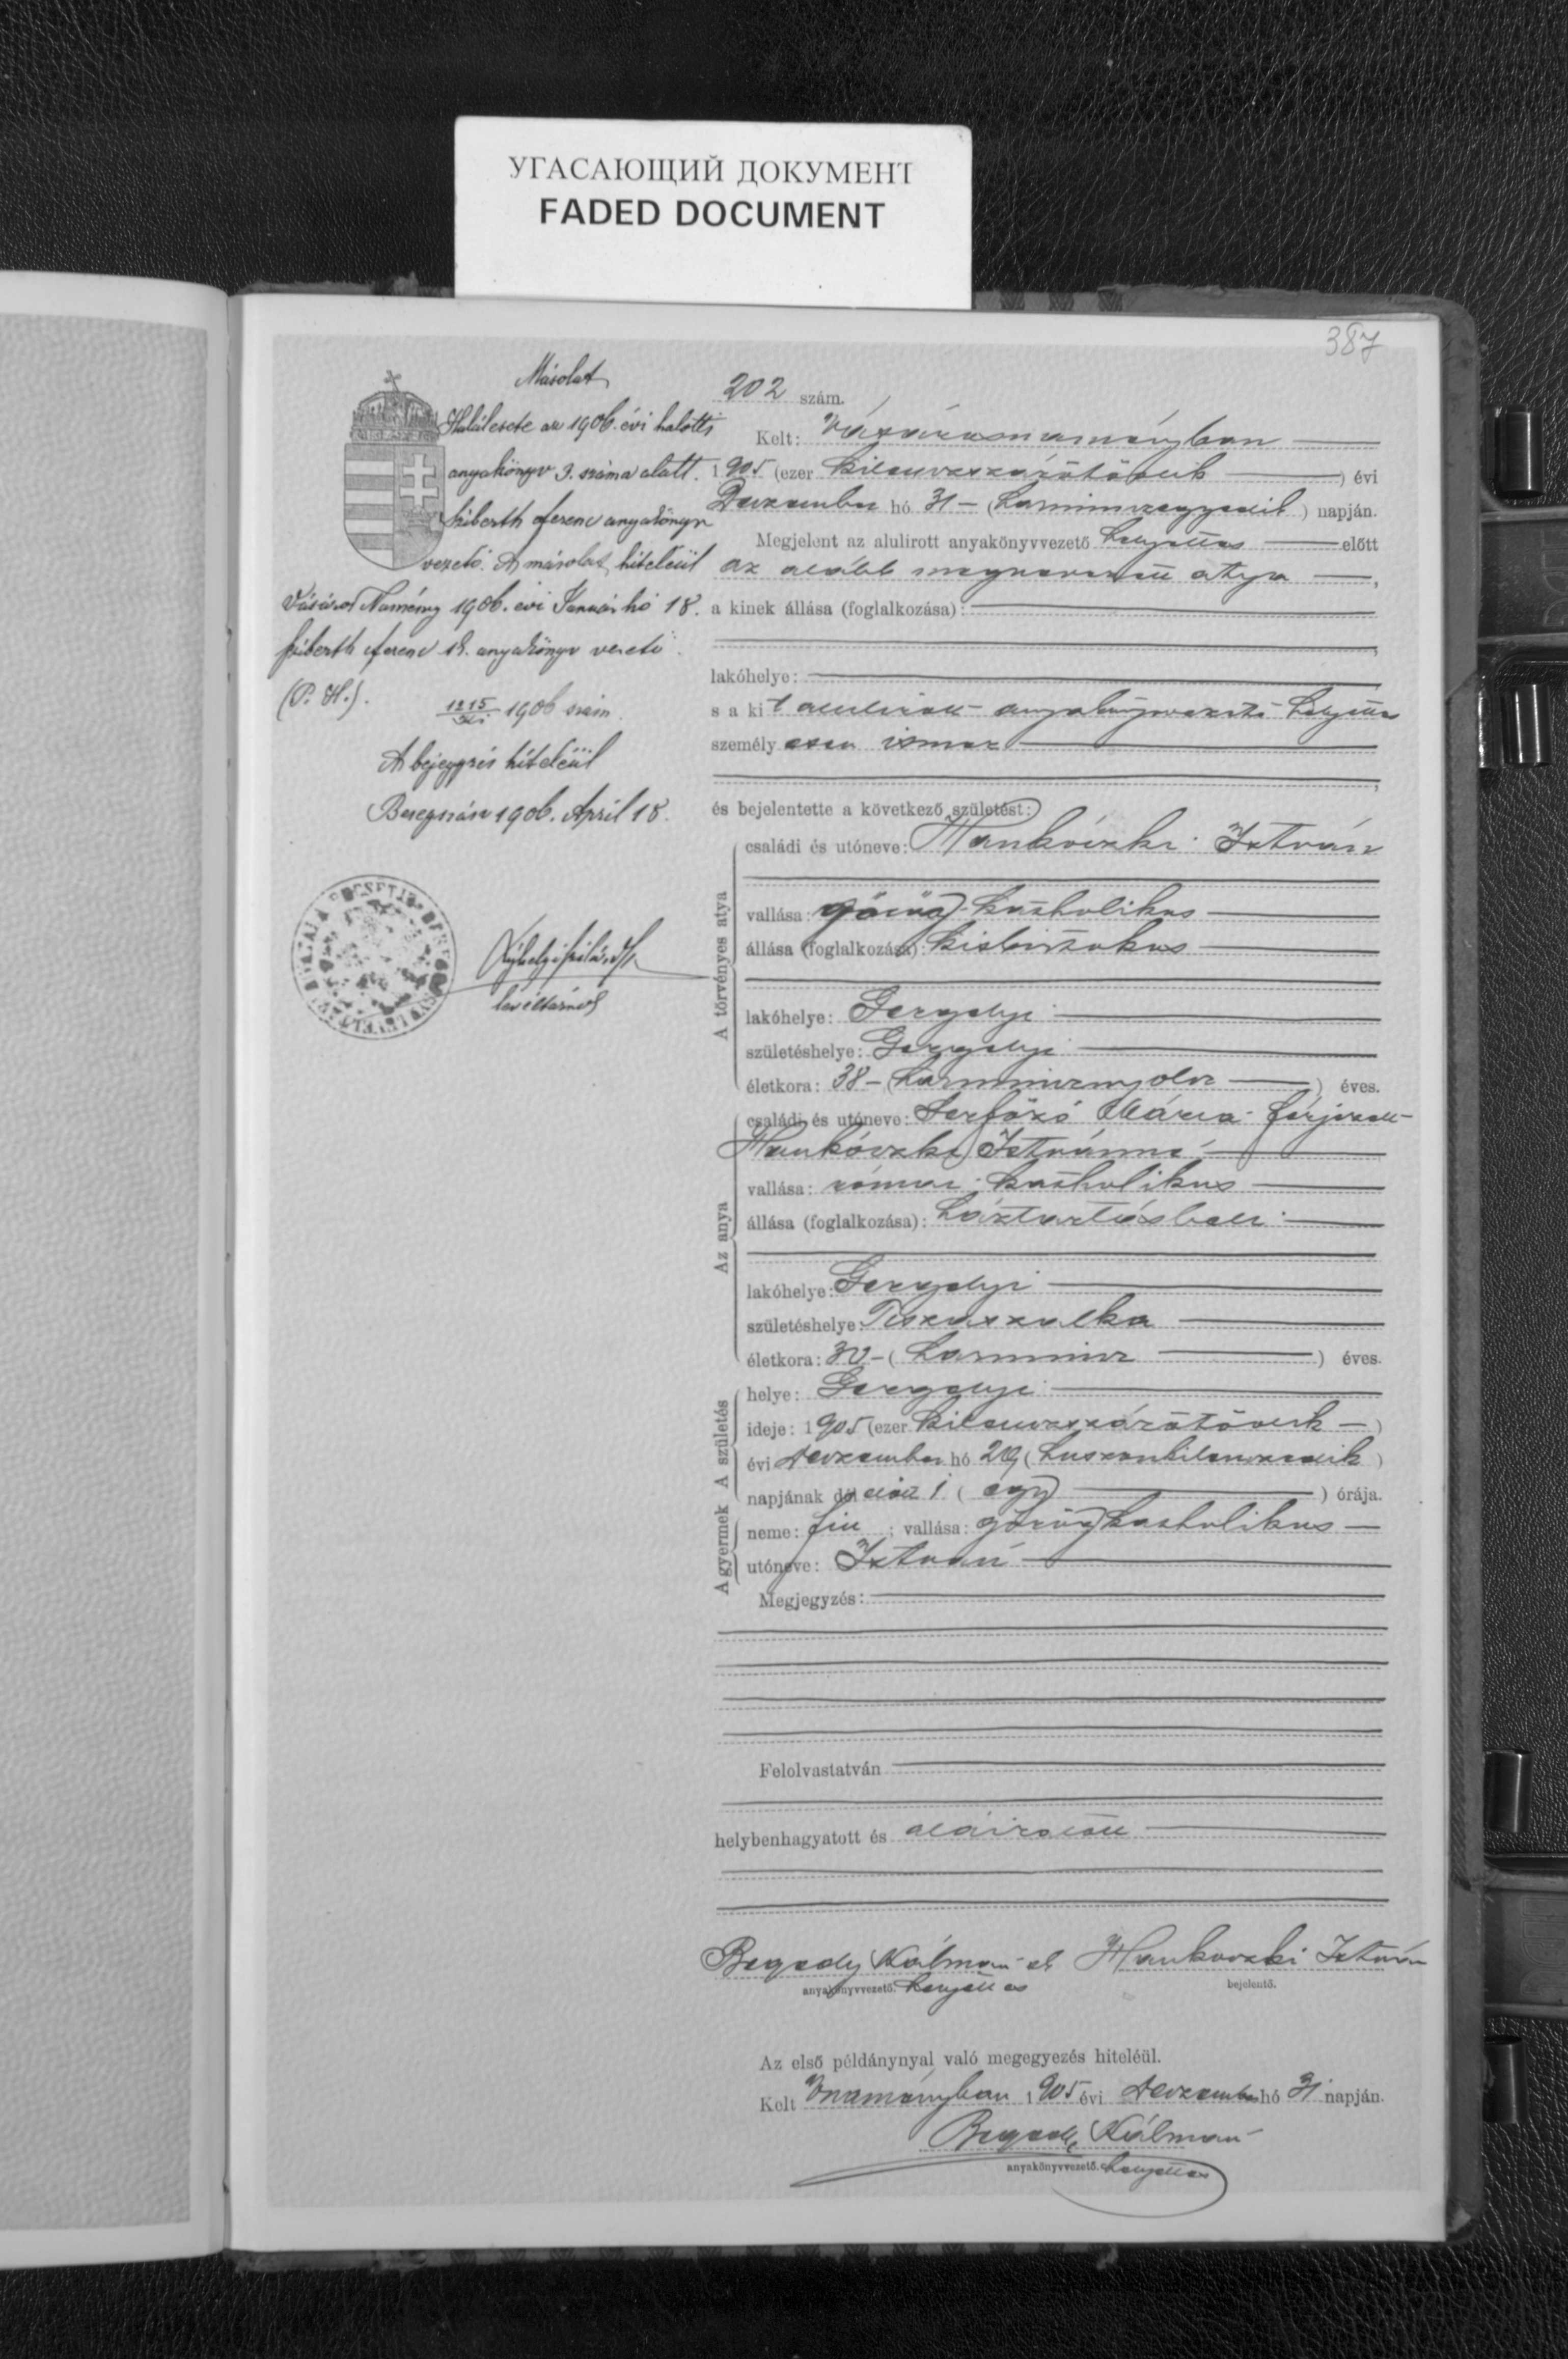 УГАСАЮЩИЙ ДОКУМЕНТ
FADED DOCUMENT
387
Másolat
Halálesete az 1906. évi halotti
anyakönyv 3. száma alatt.
Ferenc anyakönyv
vezető. A másolat hiteléül
Vásáros Namény 1906. évi Január hó 18.
Ferenc anyakönyv vezető.
(P. H.).
1215 1906 szám.
A bejegyzés hiteléül
Beregszász 1906. April 18.
levéltárnok
202 szám.
Kelt: Vásárosnaményban
1905 (ezer kilenczszázötödik) évi
Deczember hó 31 (harminczegyedik) napján.
Megjelent az alulirott anyakönyvvezető helyettes előtt
az alább megnevezett atya,
a kinek állása (foglalkozása):
lakóhelye:
s a kit alulirott anyakönyvvezető helyettes
személyesen ismer
és bejelentette a következő születést:
A törvényes atya
családi és utóneve: Hankóczki István
vallása: görög katholikus
állása (foglalkozása): kisbirtokos
lakóhelye: Gergelyi
születéshelye: Gergelyi
életkora: 38 – (harmincznyolcz) éves.
Az anya
családi és utóneve: Serfőző Mária férjezett
Hankóczki Istvánné
vallása: római katholikus
állása (foglalkozása): háztartásbeli
lakóhelye: Gergelyi
születéshelye: Tiszaszalka
életkora: 30 – (harmincz) éves.
A születés
helye: Gergelyi
ideje: 1905 (ezer kilenczszázötödik –)
évi deczember hó 29 (huszonkilenczedik)
napjának dél előtt 1 (egy) órája.
A gyermek
neme: fiu; vallása: görög katholikus –
utóneve: István
Megjegyzés:
Felolvastatván
helybenhagyatott és aláiratott
Kálmán sk Hankovzki István
anyakönyvvezető. helyettes bejelentő.
Az első példánynyal való megegyezés hiteléül.
Kelt Vnaményban 1905 évi deczember hó 31 napján.
Kálmán
anyakönyvvezető. helyettes